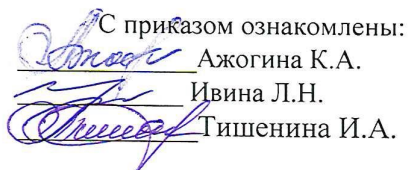 С приказом ознакомлены:
Ажогина К.А.
Ивина Л.Н.
Тишенина И.А.